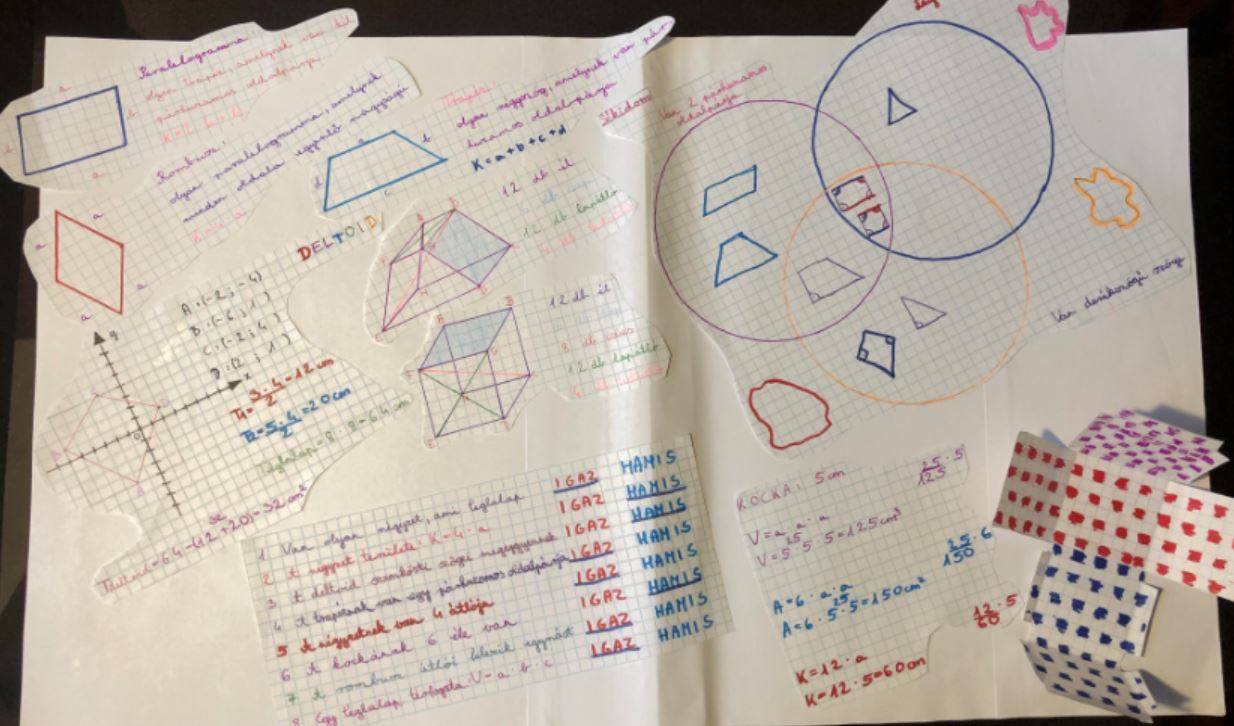 a
b
b
a
Paralelogramma
olyan trapéz, amelynek van két
párhuzamos oldalpárja
Rombusz:
olyan paralelogramma, amelynek
minden oldala egyenlő nagyságú
a
a
a
Trapéz:
olyan négyszög, amelynek van pár
huzamos oldalpárja
K=a+b+c+d
a
b
c
d
DELTOID
A:(-2; -4)
B:(-6; 1)
C:(-2; 4)
D:(2; 1)
y
x
0
T₁=3·4/2=12 cm
T2=5·4/2=20 cm
Téglalap=8·8=64 cm
32
Tdeltoid=64-(12+20)=32 cm²
12 db él
12 db lapátló
12 db él
8 db csúcs
12 db lapátló
Síkidom
Van 2 párhuzamos
oldalpárja
Van derékszögű szöge
1 Van olyan négyzet, ami téglalap IGAZ HAMIS
2 A négyzet területe: K=4·a IGAZ HAMIS
3 A deltoid szemközti szögei megegyeznek IGAZ HAMIS
4 A trapéznak van egy párhuzamos oldalpárja IGAZ HAMIS
5 A négyzetnek van 4 átlója IGAZ HAMIS
6 A kockának 6 éle van IGAZ HAMIS
7 A rombusz átlói felezik egymást IGAZ HAMIS
8 Egy téglalap térfogata: V=a·b·c IGAZ HAMIS
KOCKA: 5 cm
25·5
125
V=a·a·a
25
V=5·5·5=125cm³
25·6
150
A=6·a·a
25
A=6·5·5=150cm²
12·5
60
K=12·a
K=12·5=60cm